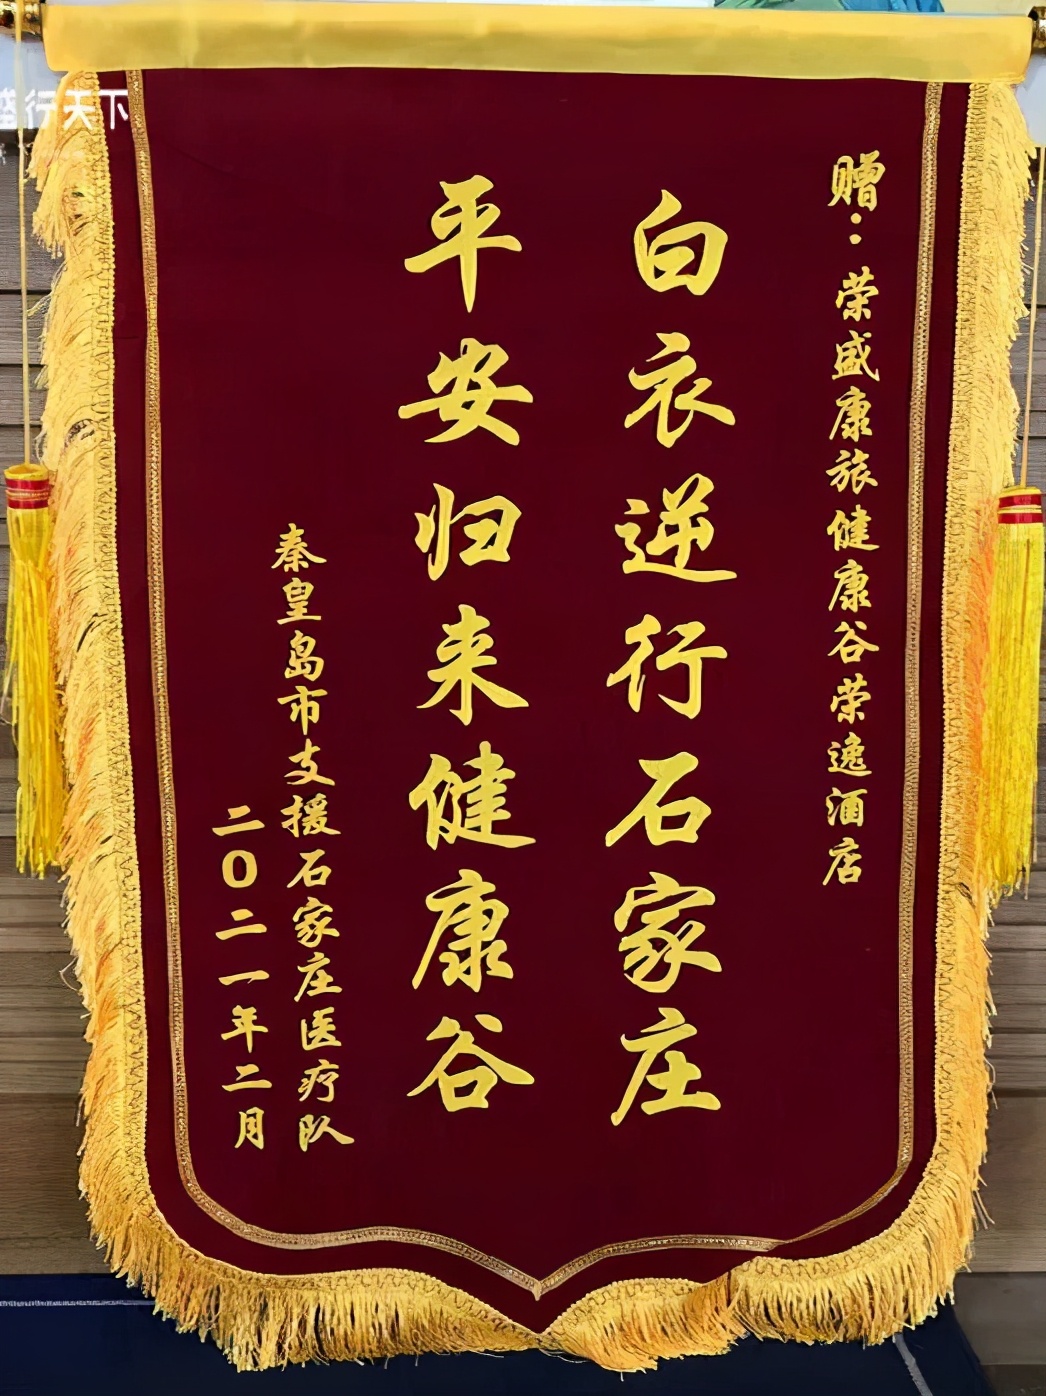 赠：荣盛康旅健康谷荣逸酒店
白衣逆行石家庄
平安归来健康谷
秦皇岛市支援石家庄医疗队
二〇二一年二月
行天下